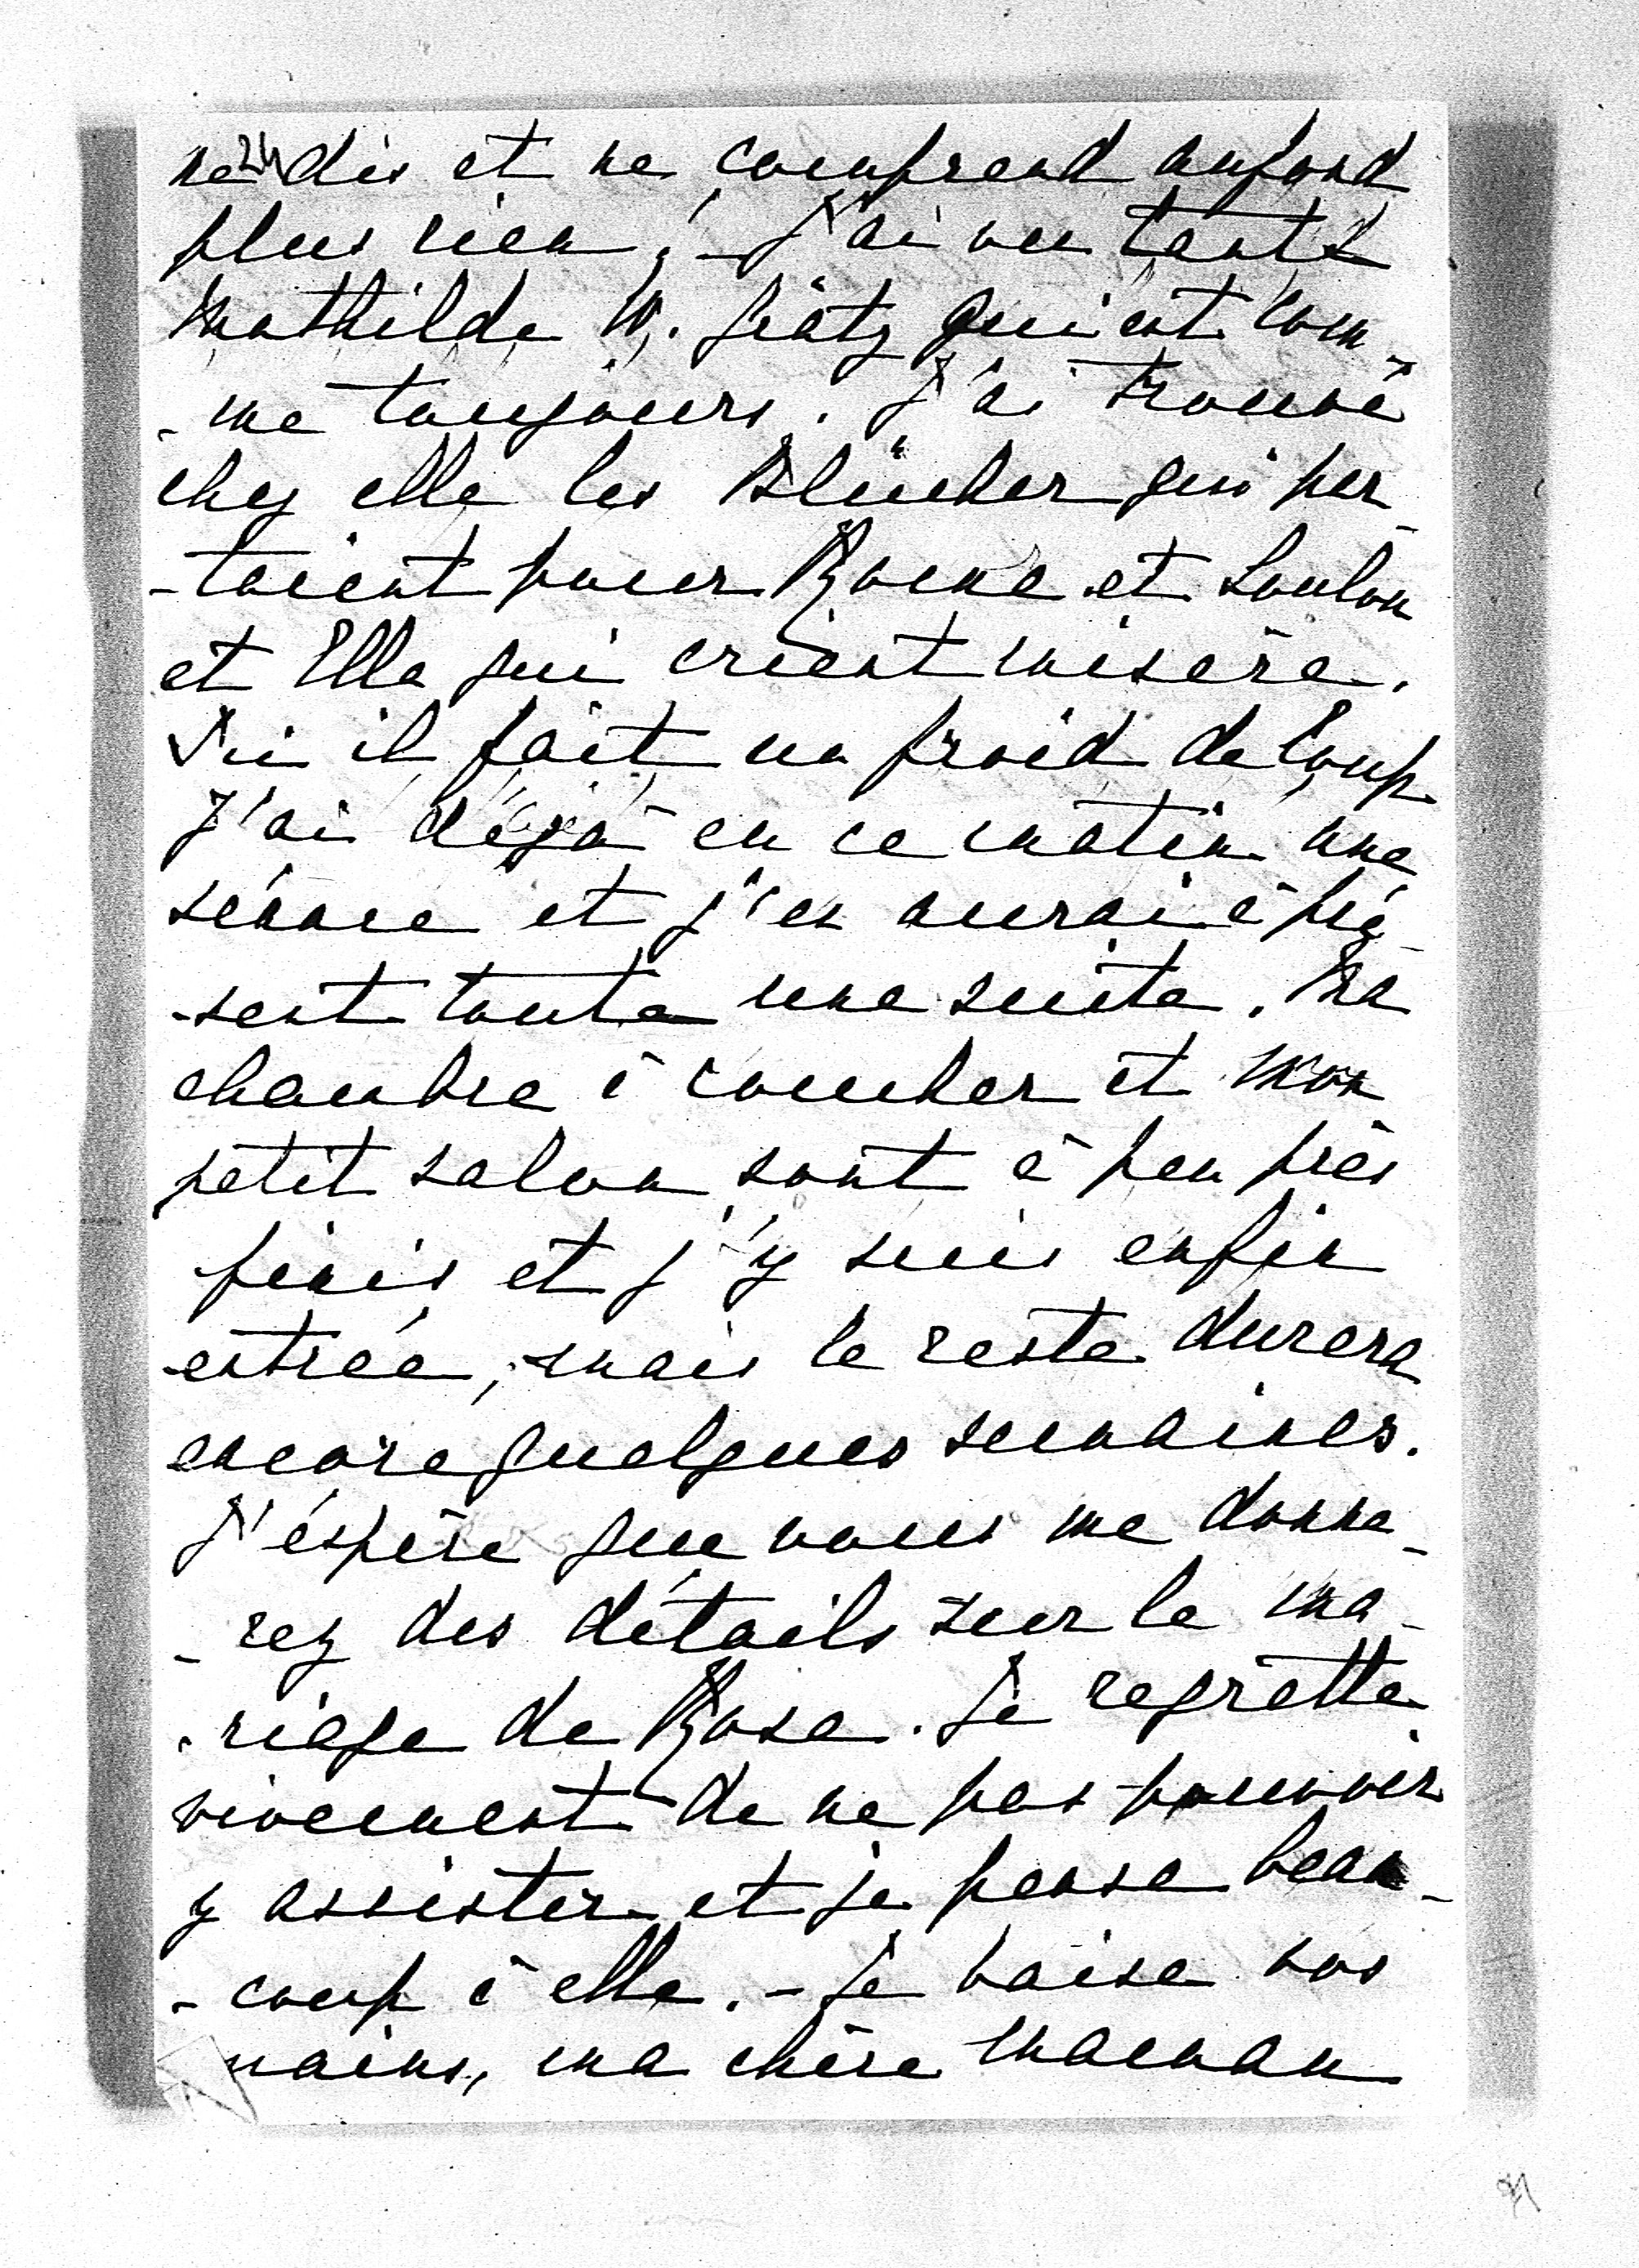 ne dis et ne comprend au fond
plus rien. – J'ai vu tante
Mathilde W. Grätz qui est com-
-me toujours. J'ai trouvé
chez elle les Blücher qui par-
-taient pour Rome et Loulou
et Ella qui crient misère.
Ici il fait un froid de loup
J'ai déjà eu ce matin une
séance et j'en aurai à pré-
-sent toute une suite. Ma
chambre à coucher et mon
petit salon sont à peu près
finis et j'y suis enfin
entrée, mais le reste durera
encore quelques semaines.
J'éspère que vous me donne-
-rez des détails sur le ma-
-riage de Rose. Je regrette
vivement de ne pas pouvoir
y assister et je pense beau-
-coup à elle. – Je baise vos
mains, ma chère Maman